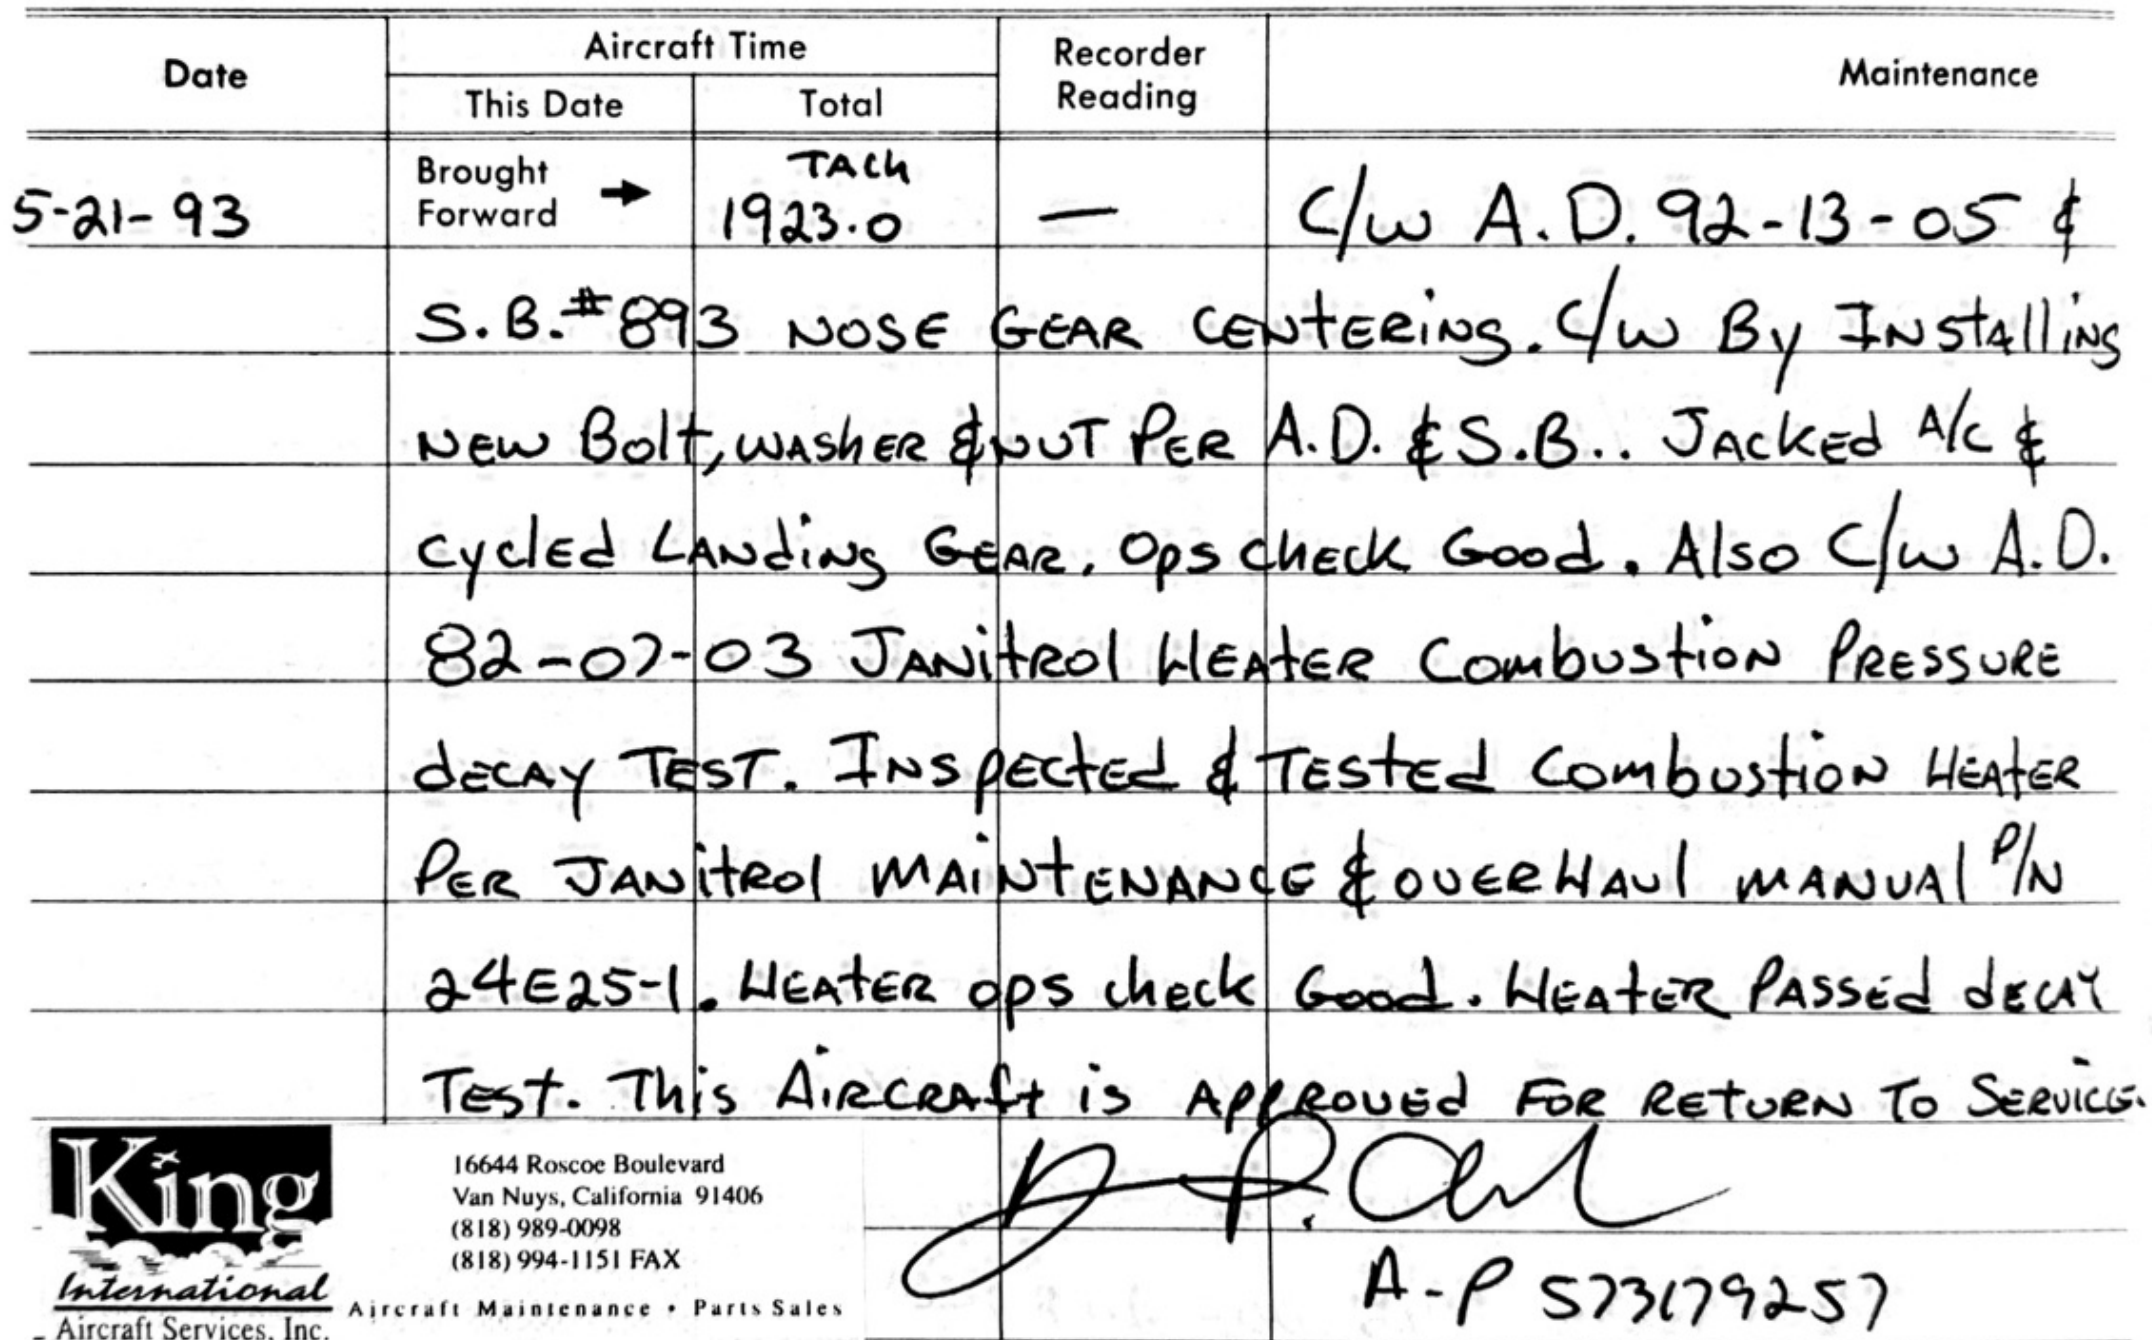 Date
Aircraft Time
This Date
Total
Recorder
Reading
Maintenance
5-21-93
Brought
Forward
TACH
1923.0
—
C/W A.D. 92-13-05 &
S.B.#893 NOSE GEAR CENTERING. C/W By INSTAlliNG
NEW Bolt, WASHER & NUT PER A.D. & S.B.. JACKED A/C &
CyclEd LANdiNg GEAR. Ops CHECK Good. Also C/W A.D.
82-07-03 JANitROl HEATER COMbUSTiON PRESSURE
dECAY TEST. INSpECtEd & TESTEd COMbUSTiON HEATER
PER JANitROl MAiNTENANCE & OVERHAUl MANUAl P/N
24E25-1. HEATER OpS CHECk Good. HEATER PASSEd dECAY
TEST. This AiRCRAft is APPROVEd FOR RETURN TO SERVICE.
King
International
Aircraft Services, Inc.
16644 Roscoe Boulevard
Van Nuys, California 91406
(818) 989-0098
(818) 994-1151 FAX
Aircraft Maintenance • Parts Sales
A-P 573179257